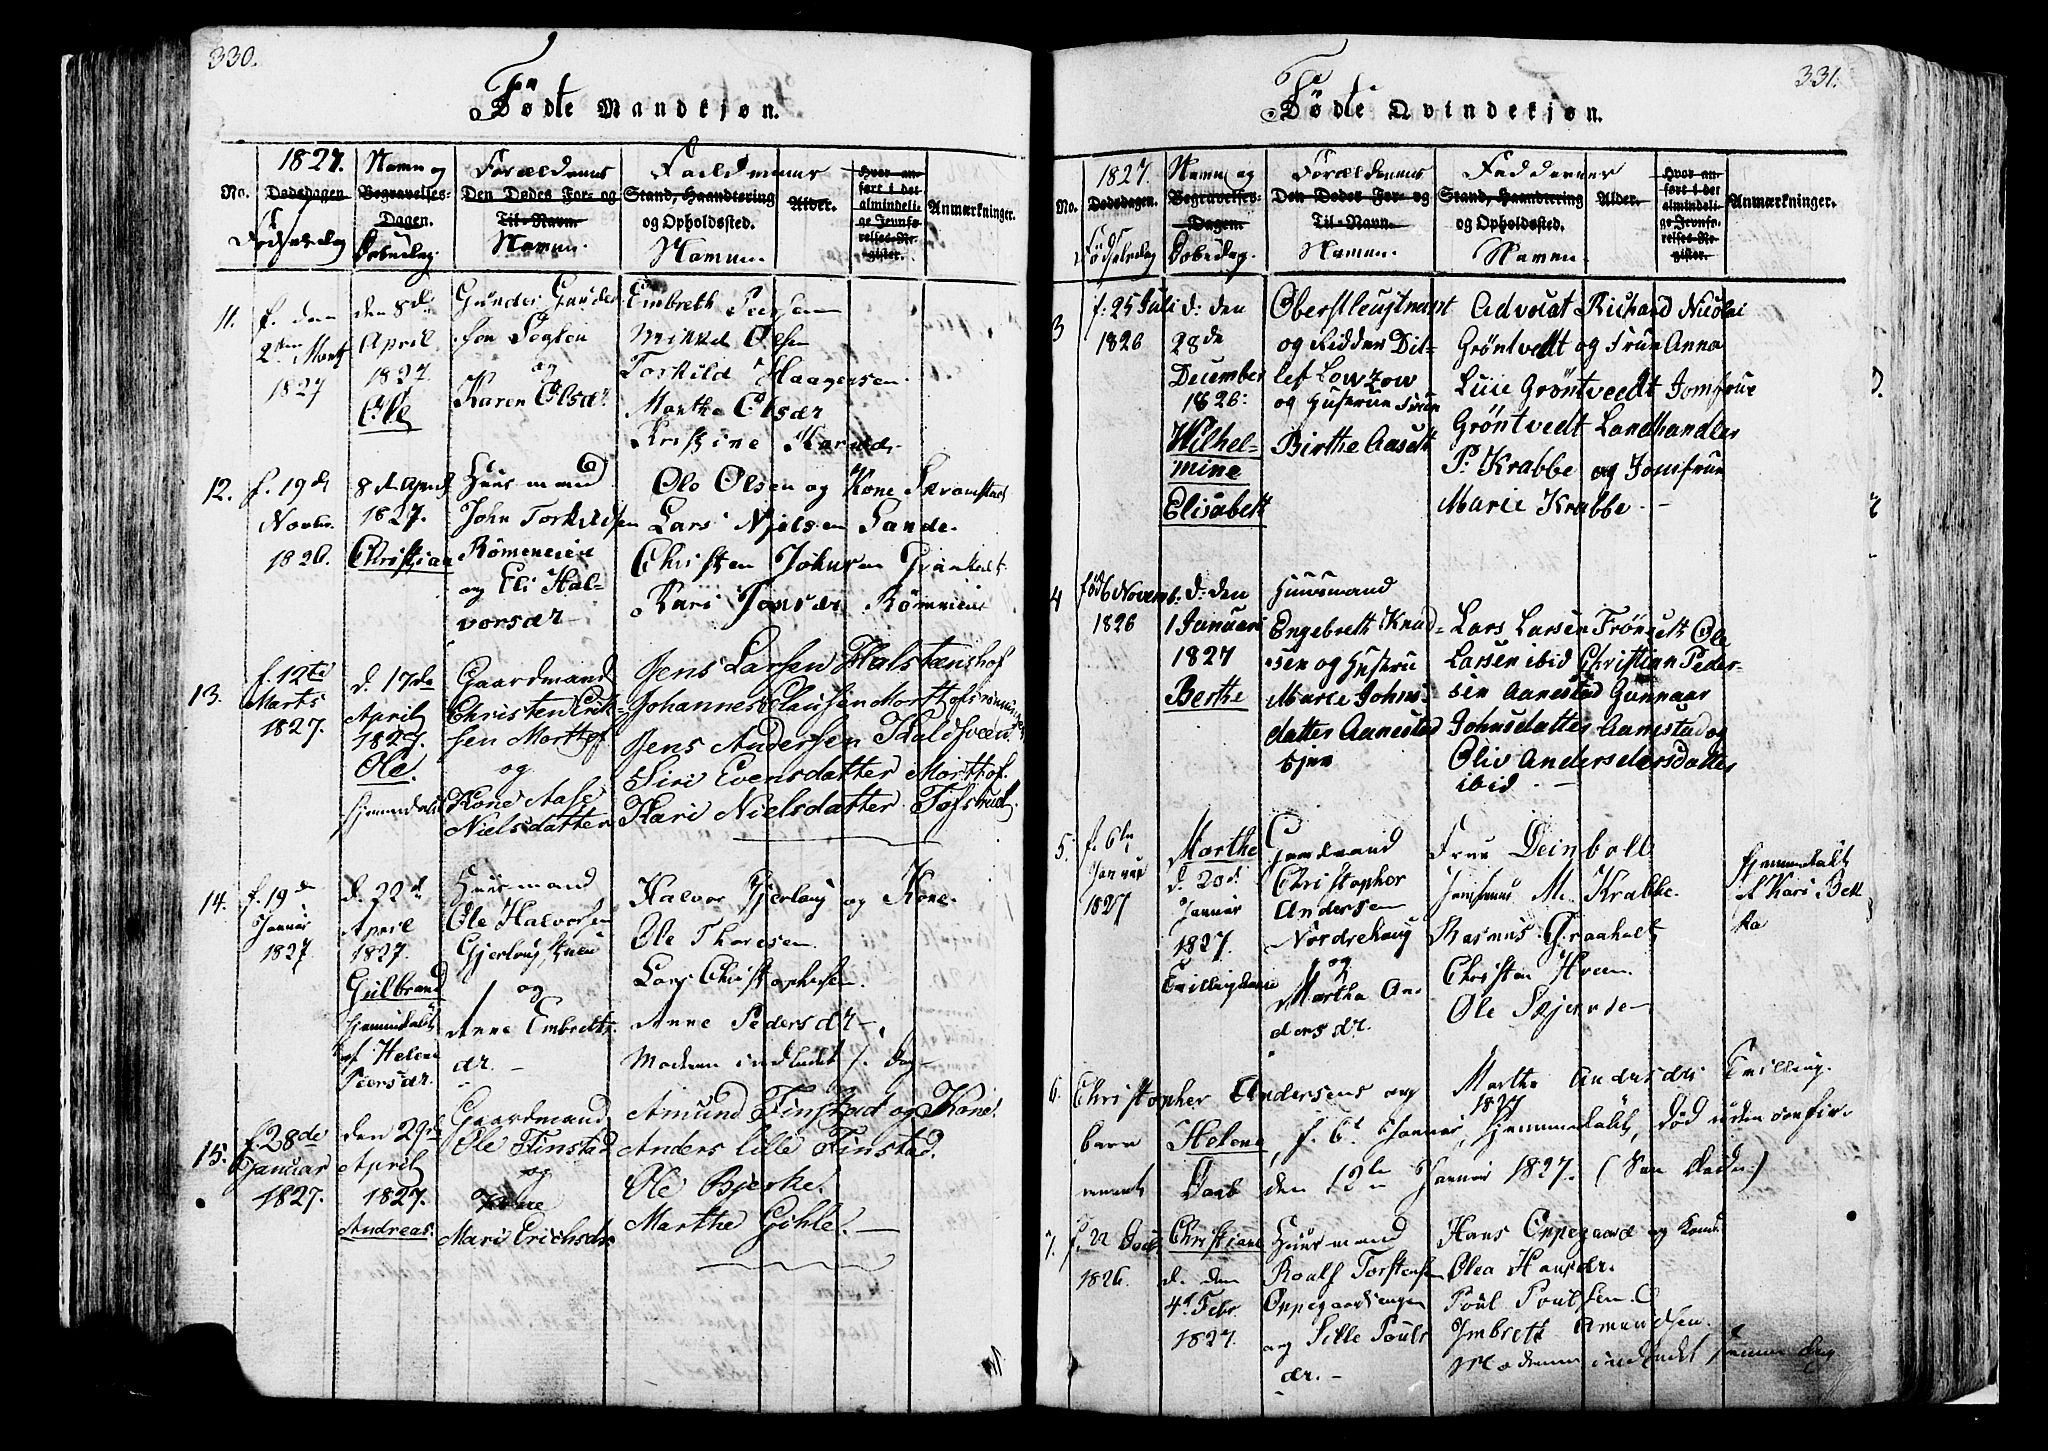 330.
Føde Mandkjøn.
1827.
No.
Dødsdagen
Fødselsdag
Navn og
Begravelses-
Dagen.
Dobedag.
Forældrenes
Den Dødes For- og
Til-Navn
Navne.
Faddernes
Stand, Haandtering
og Opholdssted.
Navne.
Alder.
Hvor an-
ført i det
almindeli-
ge Jevnfø-
relses-Re-
gister.
Anmærkninger.
11.
f. den
2den Marts
1827
den 8de
April
1827.
Ole
Gunder Gunder-
sen
og
Karen Olsdr
Embreth
Mikkel Olsen
Torkild Haagensen
Marthe Olsdr
Kristine
12.
f. 19de
Novbr.
1826.
8de April
1827.
Christian
Huusmand
John Torkildsen
Rømeneie
og Eli Hal-
vorsdr
Ole Olsen og Kone
Lars Nielsen Sande.
Christen Johnsen
Kari Jonsdr Rømeneie
13.
f. 12te
Marts
1827.
d. 17de
April
1827.
Ole.
hjemmedøbt
Gaardmand
Christen Erik-
sen Morthof
og
Kone Aase
Nielsdatter
Jens Larsen Halstenshof
Johannes Clausen Morthof
Jens Andersen Kaldsveen
Siri Evensdatter Morthof.
Kari Nielsdatter Tofsrud.
14.
f. 19de
Januar
1827.
d. 22de
April
1827.
Gulbrand
hjemmedøbt
af Helene
Peersdr.
Huusmand
Ole Halvorsen
Gjerlaug
og
Anne Embrets-
dr.
Halvor Gjerlaug og Kone.
Ole Thoresen.
Lars Christophersen.
Anne Pedersdr
Moderen indledet s. Dag
15.
f 28de
Januar
1827.
den 29de
April
1827.
Andreas.
Gaardmand
Ole Finstad
og
Kone
Mari Erichsdr
Amund Finstad og Kone.
Anders lille Finstad.
Ole Bjerke.
Marthe Gøhle.
331.
Føde Qvindekjøn.
1827.
No.
Dødsdagen.
Fødselsdag
Navn og
Begravelses-
Dagen
Dobedag.
Forældrenes
Den Dødes For- og
Til-Navn.
Navne.
Faddernes
Stand, Haandtering
og Opholdssted.
Navne.
Alder.
Hvor an-
ført i det
almindeli-
ge Jevnfø-
relses-Re-
gister.
Anmærkninger.
3
f. 25 Juli
1826
d: den
28de
December
1826:
Wilhel-
mine
Elisabeth
Oberstleutnant
og Ridder Dit-
lef Lowzow
og Hustrue Frue
Birthe Aaseth
Advocat Richard Nicolai
Grøntvedt og Frue Anna
Luie Grøntveedt Jomfrue
Grøntvedt Landhandler
P: Krabbe og Jomfrue
Marie Krabbe. -
4
fød 6 Novemb.
1826
d: den
1 Januari
1827
Berthe
Huusmand
Engebreth Knud-
sen og Hustru
Marie Johns-
datter Aanestad
Ejer
Lars Larsen Trønseth Ole
Larsen ibid Christian Peder-
sen Aanestad Gunnaar
Johnsdatter Aanestad og
Oliv Andersdersdatter
ibid. -
5.
f. 6te
Januar
1827
Marthe
d. 20de
Januar
1827.
Tvillingbarn
Gaardmand
Christopher
Andersen
Nordrehaug
og
Martha An-
dersdr.
Frue Deinboll
Jomfrue M. Krabbe.
Rasmus Graaholt
Christen Hveem.
Ole Skjerden
hjemmedøbt
af Kari
6.
Christopher Andersens og Marthe Andersdrs Tvilling-
barn Helene, f. 6t Januar 1827, hjemmedøbt, død uden confir-
meret Daab den 12te Januar 1827.
7.
f. 22
1826.
Christiane
d. den
4de Febr.
1827.
Huusmand
Roalf Torstensen
Oppegaardsengen
og Sille Pouls-
dr. -
Hans Oppegaard og Kone
Olea Hansdr.
Poul Poulsen.
Imbreth Amundsen.
Moderen indledet samme Dag